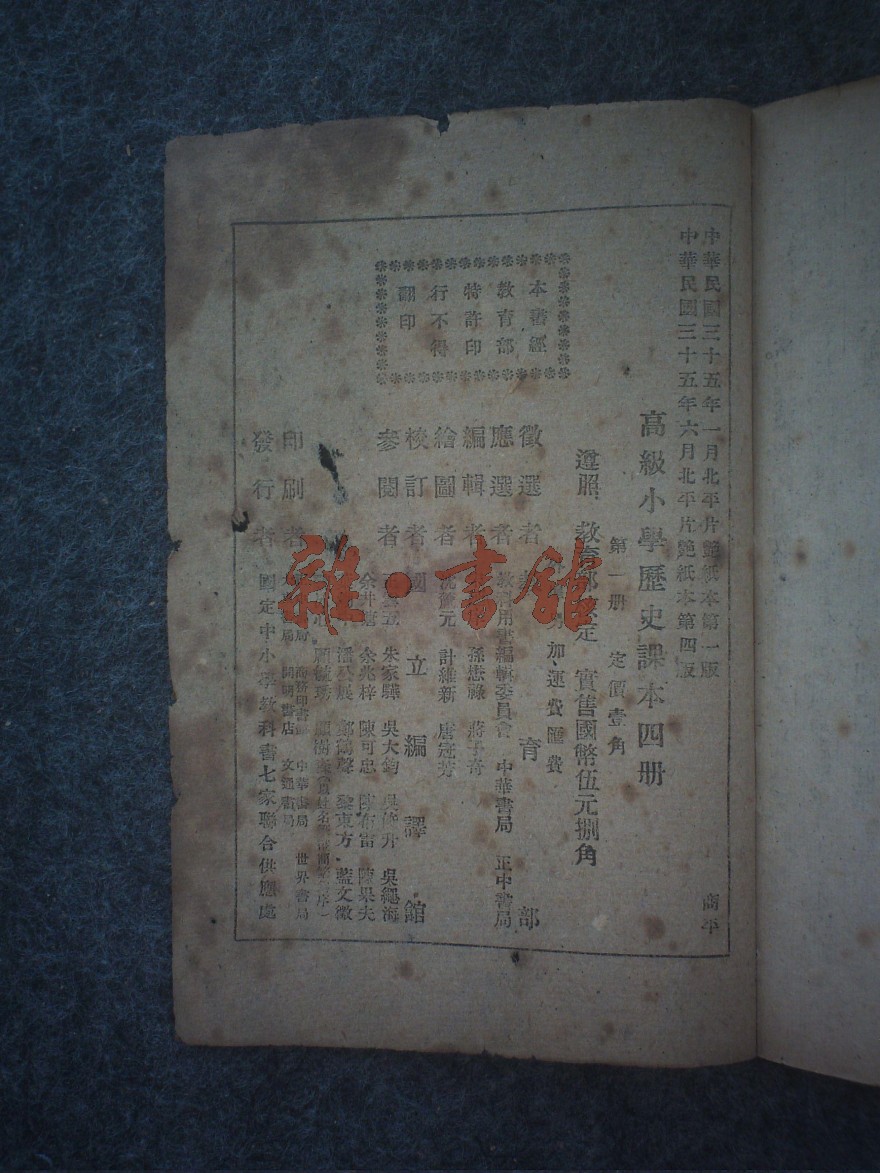 中華民國三十五年一月北平片艶紙本第一版
中華民國三十五年六月北平片艶紙本第四版
商平
高級小學歷史課本四册
第一册 定價壹角
遵照 教育部 定 實售國幣伍元捌角
加運費匯費
本書經
教育部
特許印
行不得
翻印
徵選者 育部
應選者 教科用書編輯委員會 中華書局 正中書局
編輯者 孫慰祿 蔣子奇
繪圖者 元 計維新 唐冠芳
校訂者 國立編譯館
參閱者 朱家驊 吳大鈞 吳俊升 吳繩海
余井塘 余兆梓 陳可忠 陳布雷 陳果夫
潘公展 鄭鶴聲 黎東方 藍文徵
顧毓琇
印刷者 商務印書 中華書局 世界書局
書局 開明書店 文通書局
發行者 國定中小學教科書七家聯合供應處
雜·書館